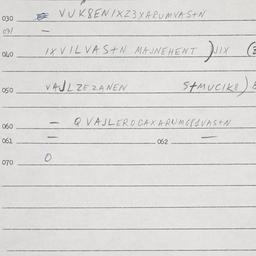 030 VUK8ENIXZ3XARUMVASTN
031 —
040 IXVILVASTN MAJNEHENT ) JIX (3
050 VAJLZEZANEN STMUCIK8)
060 — QVAJLEROCAXARUM
061 — 062 —
070 O